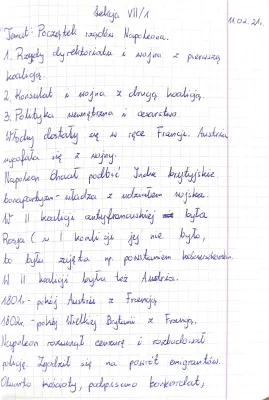 Lekcja VII/1
11.02.21r.
Temat: Początek rządów Napoleona.
1. Rządy dyrektoriatu i wojna z pierwszą
koalicją.
2. Konsulat i wojna z drugą koalicją.
3. Polityka wewnętrzna i cesarstwo.
Włochy dostały się w ręce Francji. Austria
wycofała się z wojny.
Napoleon chciał podbić Indie brytyjskie
bonapartyzm - władza z udziałem wojska.
W II koalicji antyfrancuskiej była
Rosja (w I koalicji jej nie było,
bo była zajęta np. powstaniem kościuszkowskim.
W II koalicji była też Austria.
1801r. - pokój Austrii z Francją
1802r. - pokój Wielkiej Brytanii z Francją.
Napoleon rozwinął cenzurę i rozbudował
policję. Zgodził się na powrót emigrantów.
Otwarto kościoły, podpisano konkordat,